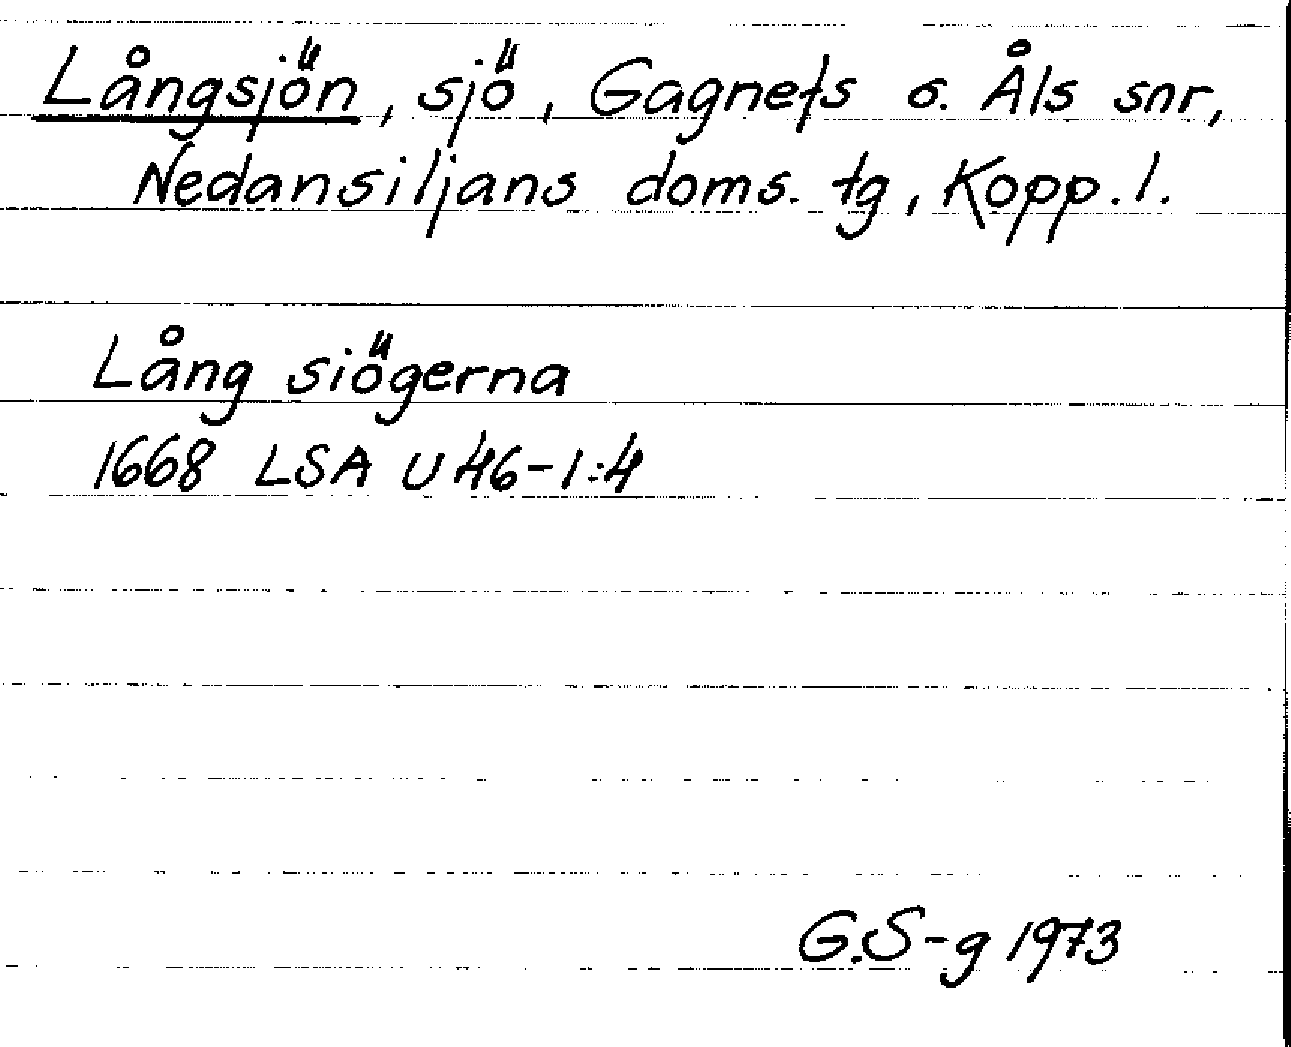 Långsjön, sjö, Gagnefs o. Åls snr,
Nedansiljans doms. tg, Kopp. l.
Lång siögerna
1668 LSA U 46-1:4
G.S-g 1973